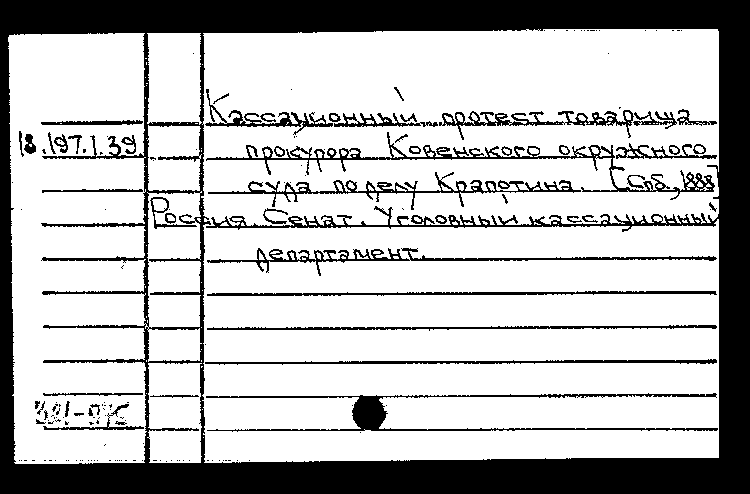 Кассационный протест товарища
18.197.1.39
прокурора Ковенского окружного
суда по делу Крапотина. [Спб., 1888]
Россия. Сенат. Уголовный кассационный
департамент.